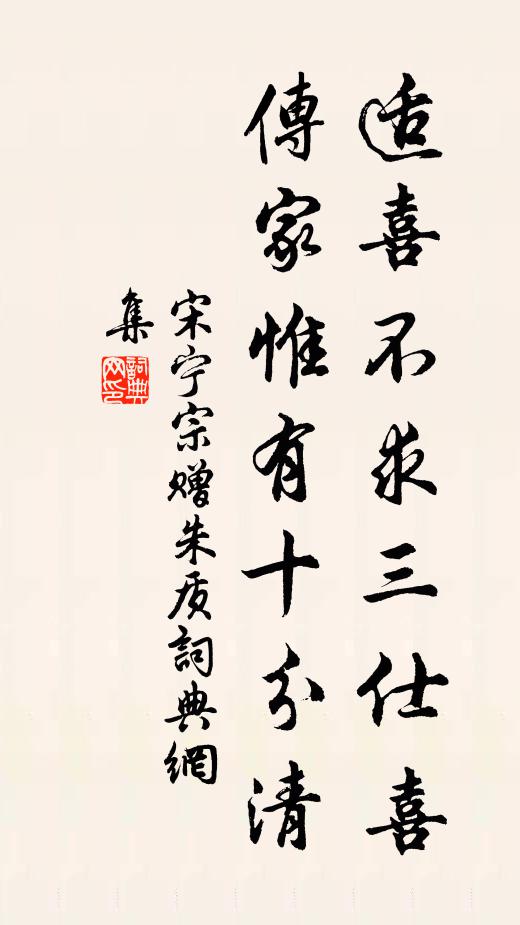 适喜不求三仕喜
傳家惟有十分清
宋宁宗赠朱质詞典網
集
詞典网印